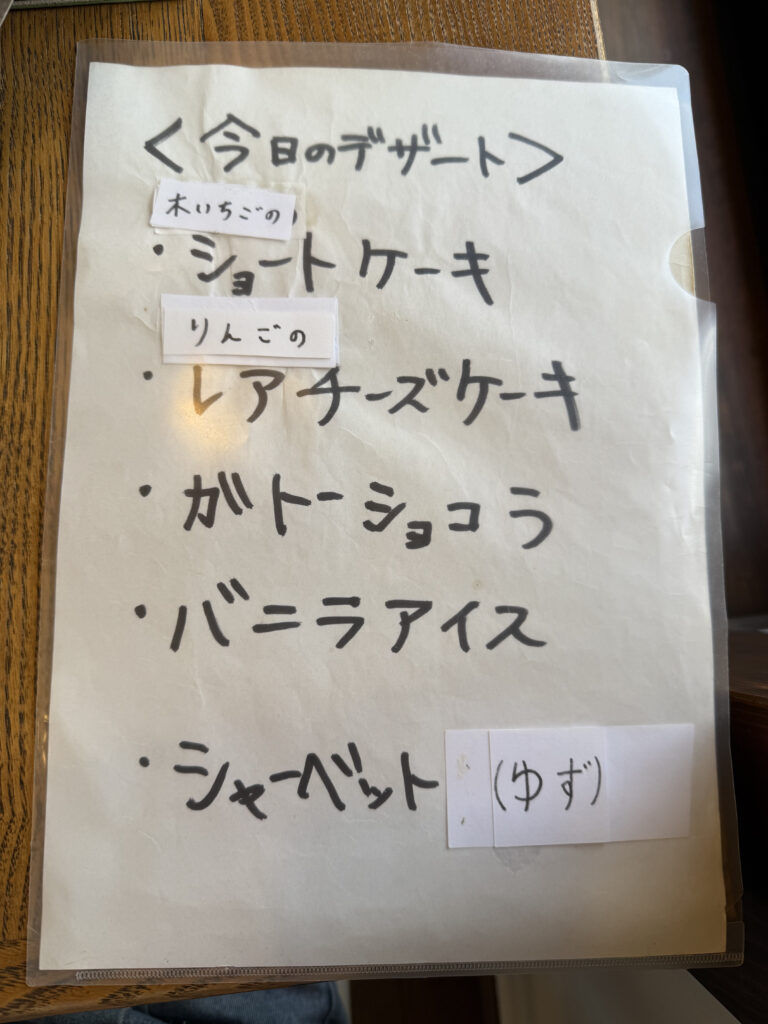 ＜今日のデザート＞
木いちごの
・ショートケーキ
りんごの
・レアチーズケーキ
・ガトーショコラ
・バニラアイス
・シャーベット (ゆず)